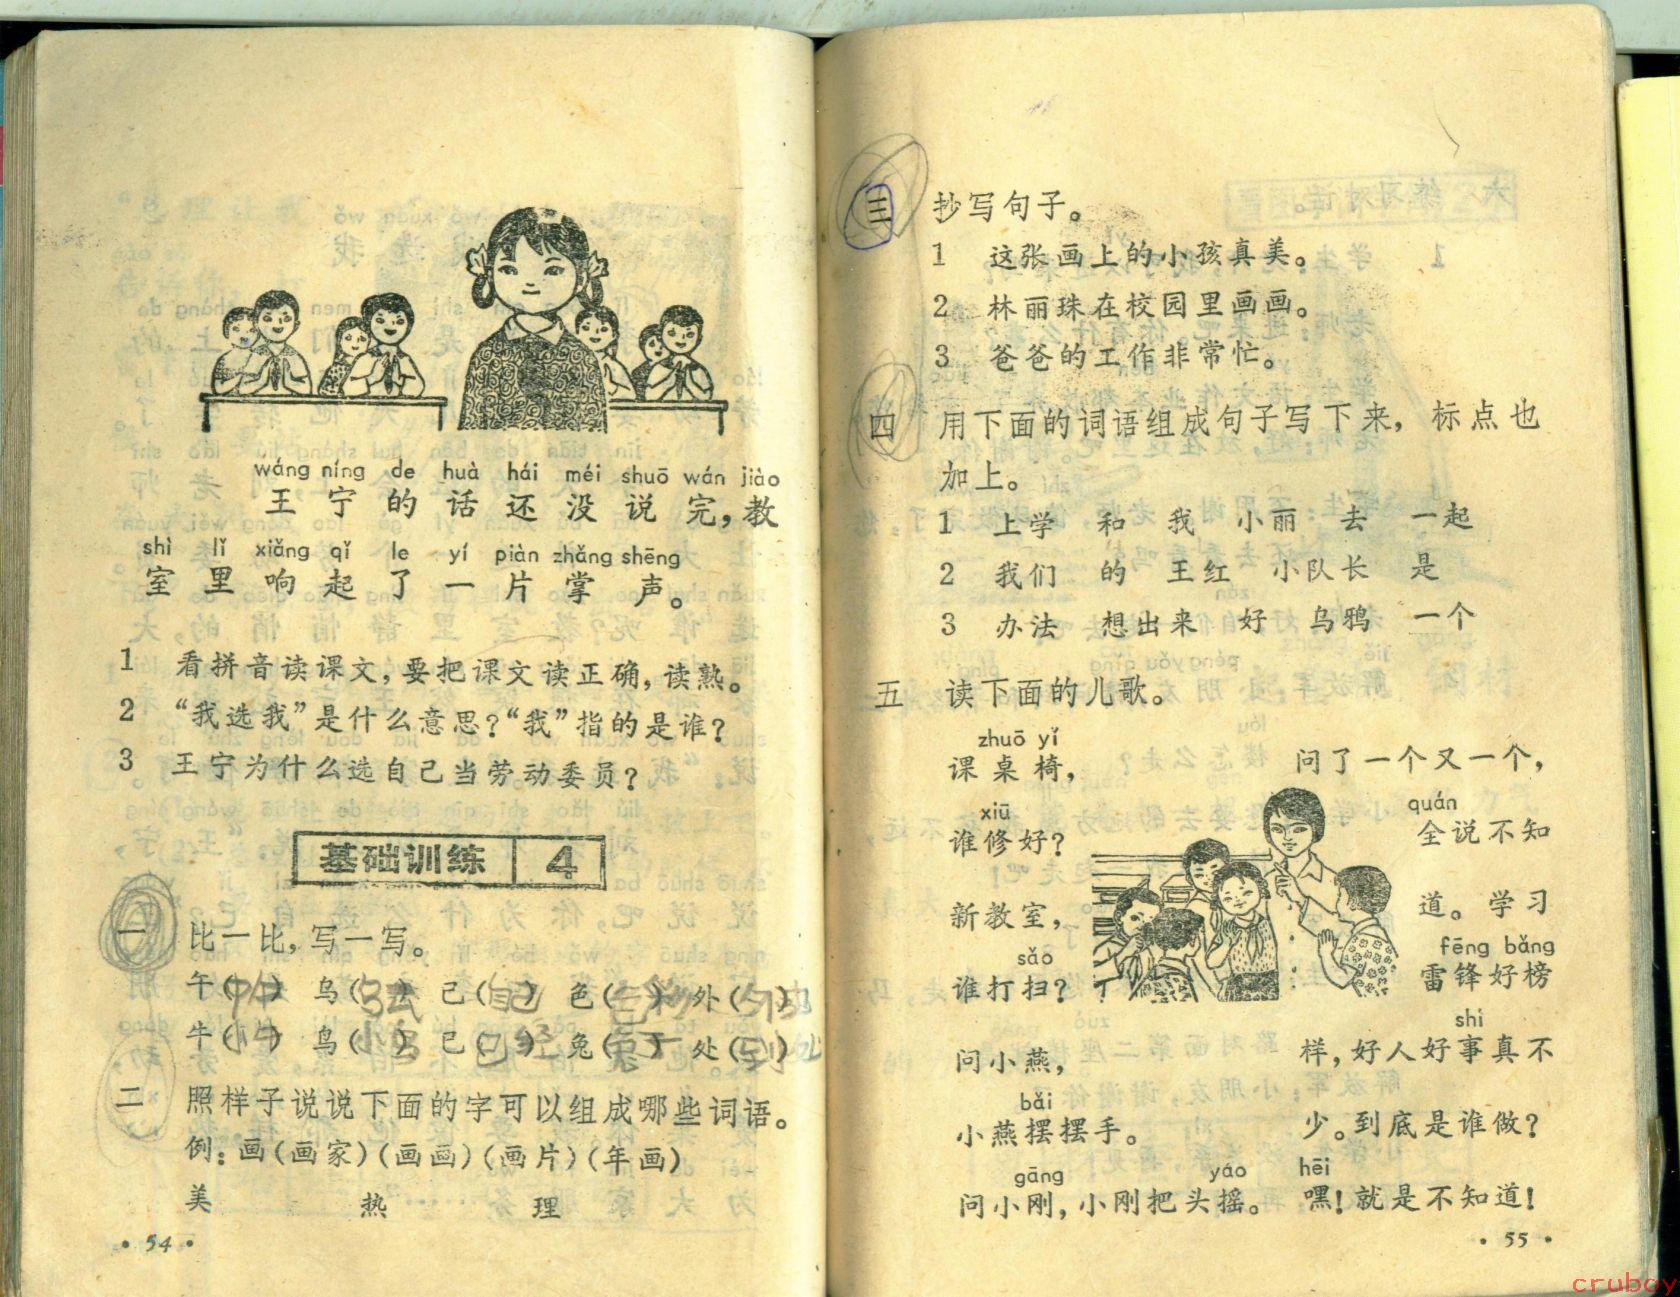 wáng níng de huà hái méi shuō wán jiào
王宁的话还没说完，教
shì lǐ xiǎng qǐ le yí piàn zhǎng shēng
室里响起了一片掌声。
1 看拼音读课文，要把课文读正确，读熟。
2 “我选我”是什么意思？“我”指的是谁？
3 王宁为什么选自己当劳动委员？
基础训练 4
一 比一比，写一写。
午（中午） 乌（乌云） 己（自己） 色（ ） 外（ ）
牛（小牛） 鸟（小鸟） 已（已经） 兔（兔子） 处（到处）
二 照样子说说下面的字可以组成哪些词语。
例：画（画家）（画画）（画片）（年画）
美 热 理
· 54 ·
三 抄写句子。
1 这张画上的小孩真美。
2 林丽珠在校园里画画。
3 爸爸的工作非常忙。
四 用下面的词语组成句子写下来，标点也
加上。
1 上学 和 我 小丽 去 一起
2 我们 的 王红 小队长 是
3 办法 想出来 好 乌鸦 一个
五 读下面的儿歌。
zhuō yǐ
课桌椅，
xiū
谁修好？
新教室，
sǎo
谁打扫？
问小燕，
bǎi
小燕摆摆手。
gāng yáo
问小刚，小刚把头摇。
问了一个又一个，
quán
全说不知
道。学习
fēng bǎng
雷锋好榜
shì
样，好人好事真不
少。到底是谁做？
hēi
嘿！就是不知道！
· 55 ·
cruboy